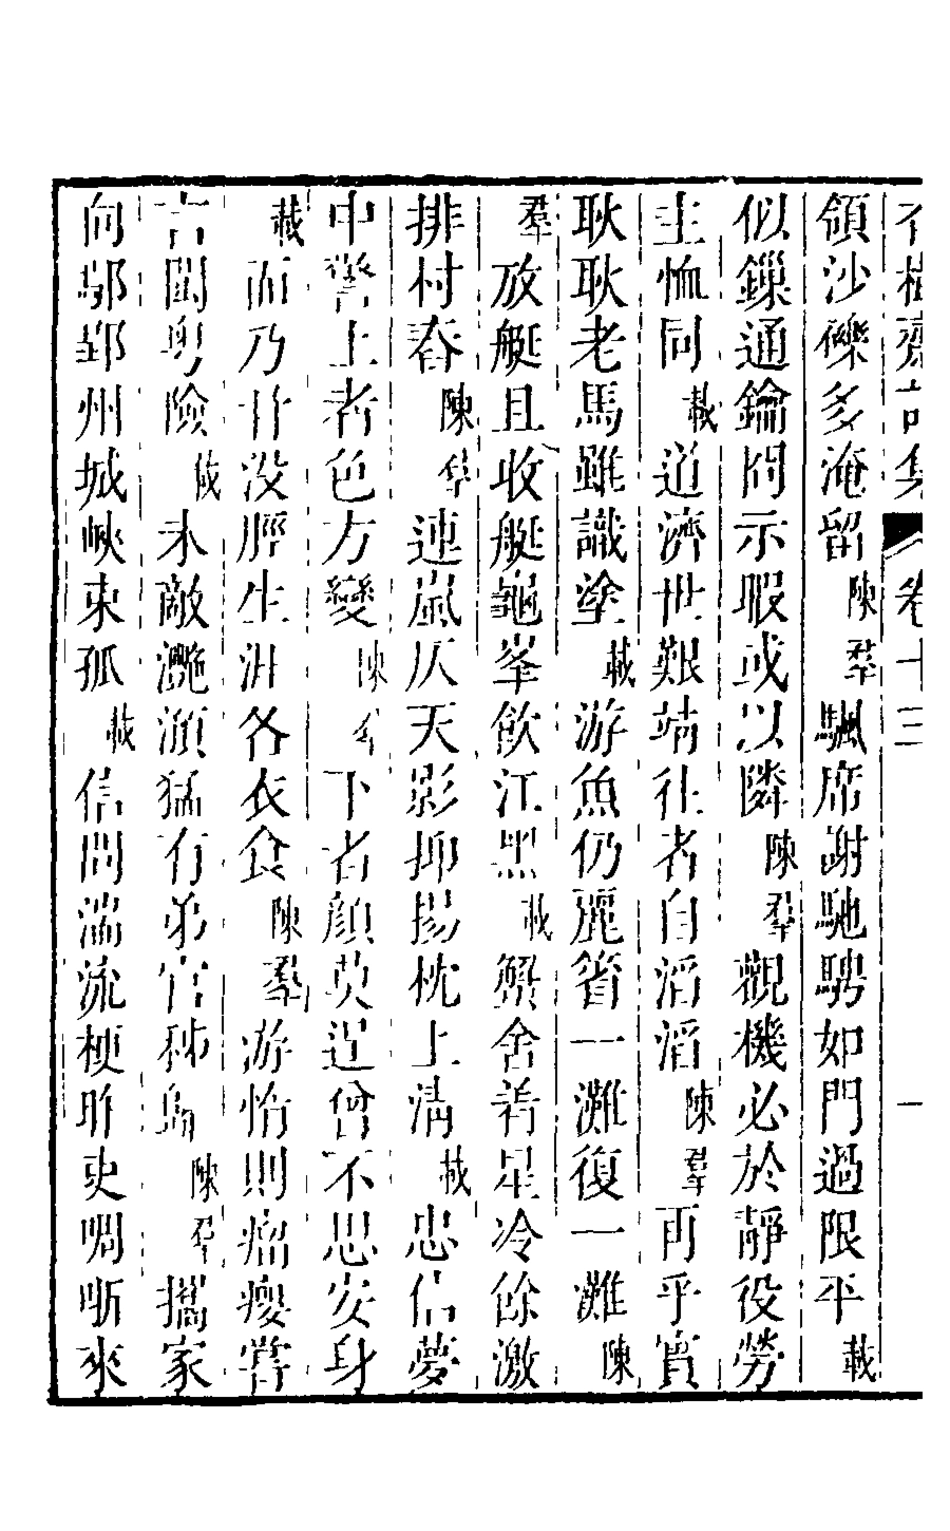 樹齋詩集 卷十三 一
領沙礫多淹留陳羣颿席謝馳騁如門過限平載
似鏁通鑰問示暇或以隣陳羣觀機必於靜役勞
主恤同載道濟世艱靖往者自滔滔陳羣再乎實
耿耿老馬雖識塗載游魚仍麗䈞一灘復一灘陳
羣放艇且收艇龜峯飲江黑載蟹舍着星冷餘激
排村舂陳羣連嵐仄天影抑揚枕上清載忠信夢
中警上者色方變陳羣下者顏莫逞曾不思安身
載而乃甘没脛生涯各衣食陳羣游怡則瘤癭嘗
言閩粤險載未敵灔澦猛有弟官秭歸陳羣攜家
向鄢郢州城峽束孤載信問湍流梗昨吏啁哳來